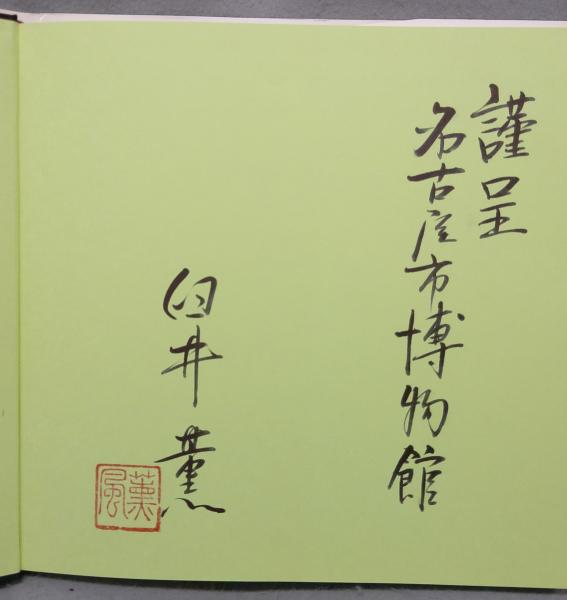 謹呈
名古屋市博物館
臼井薫
薫風